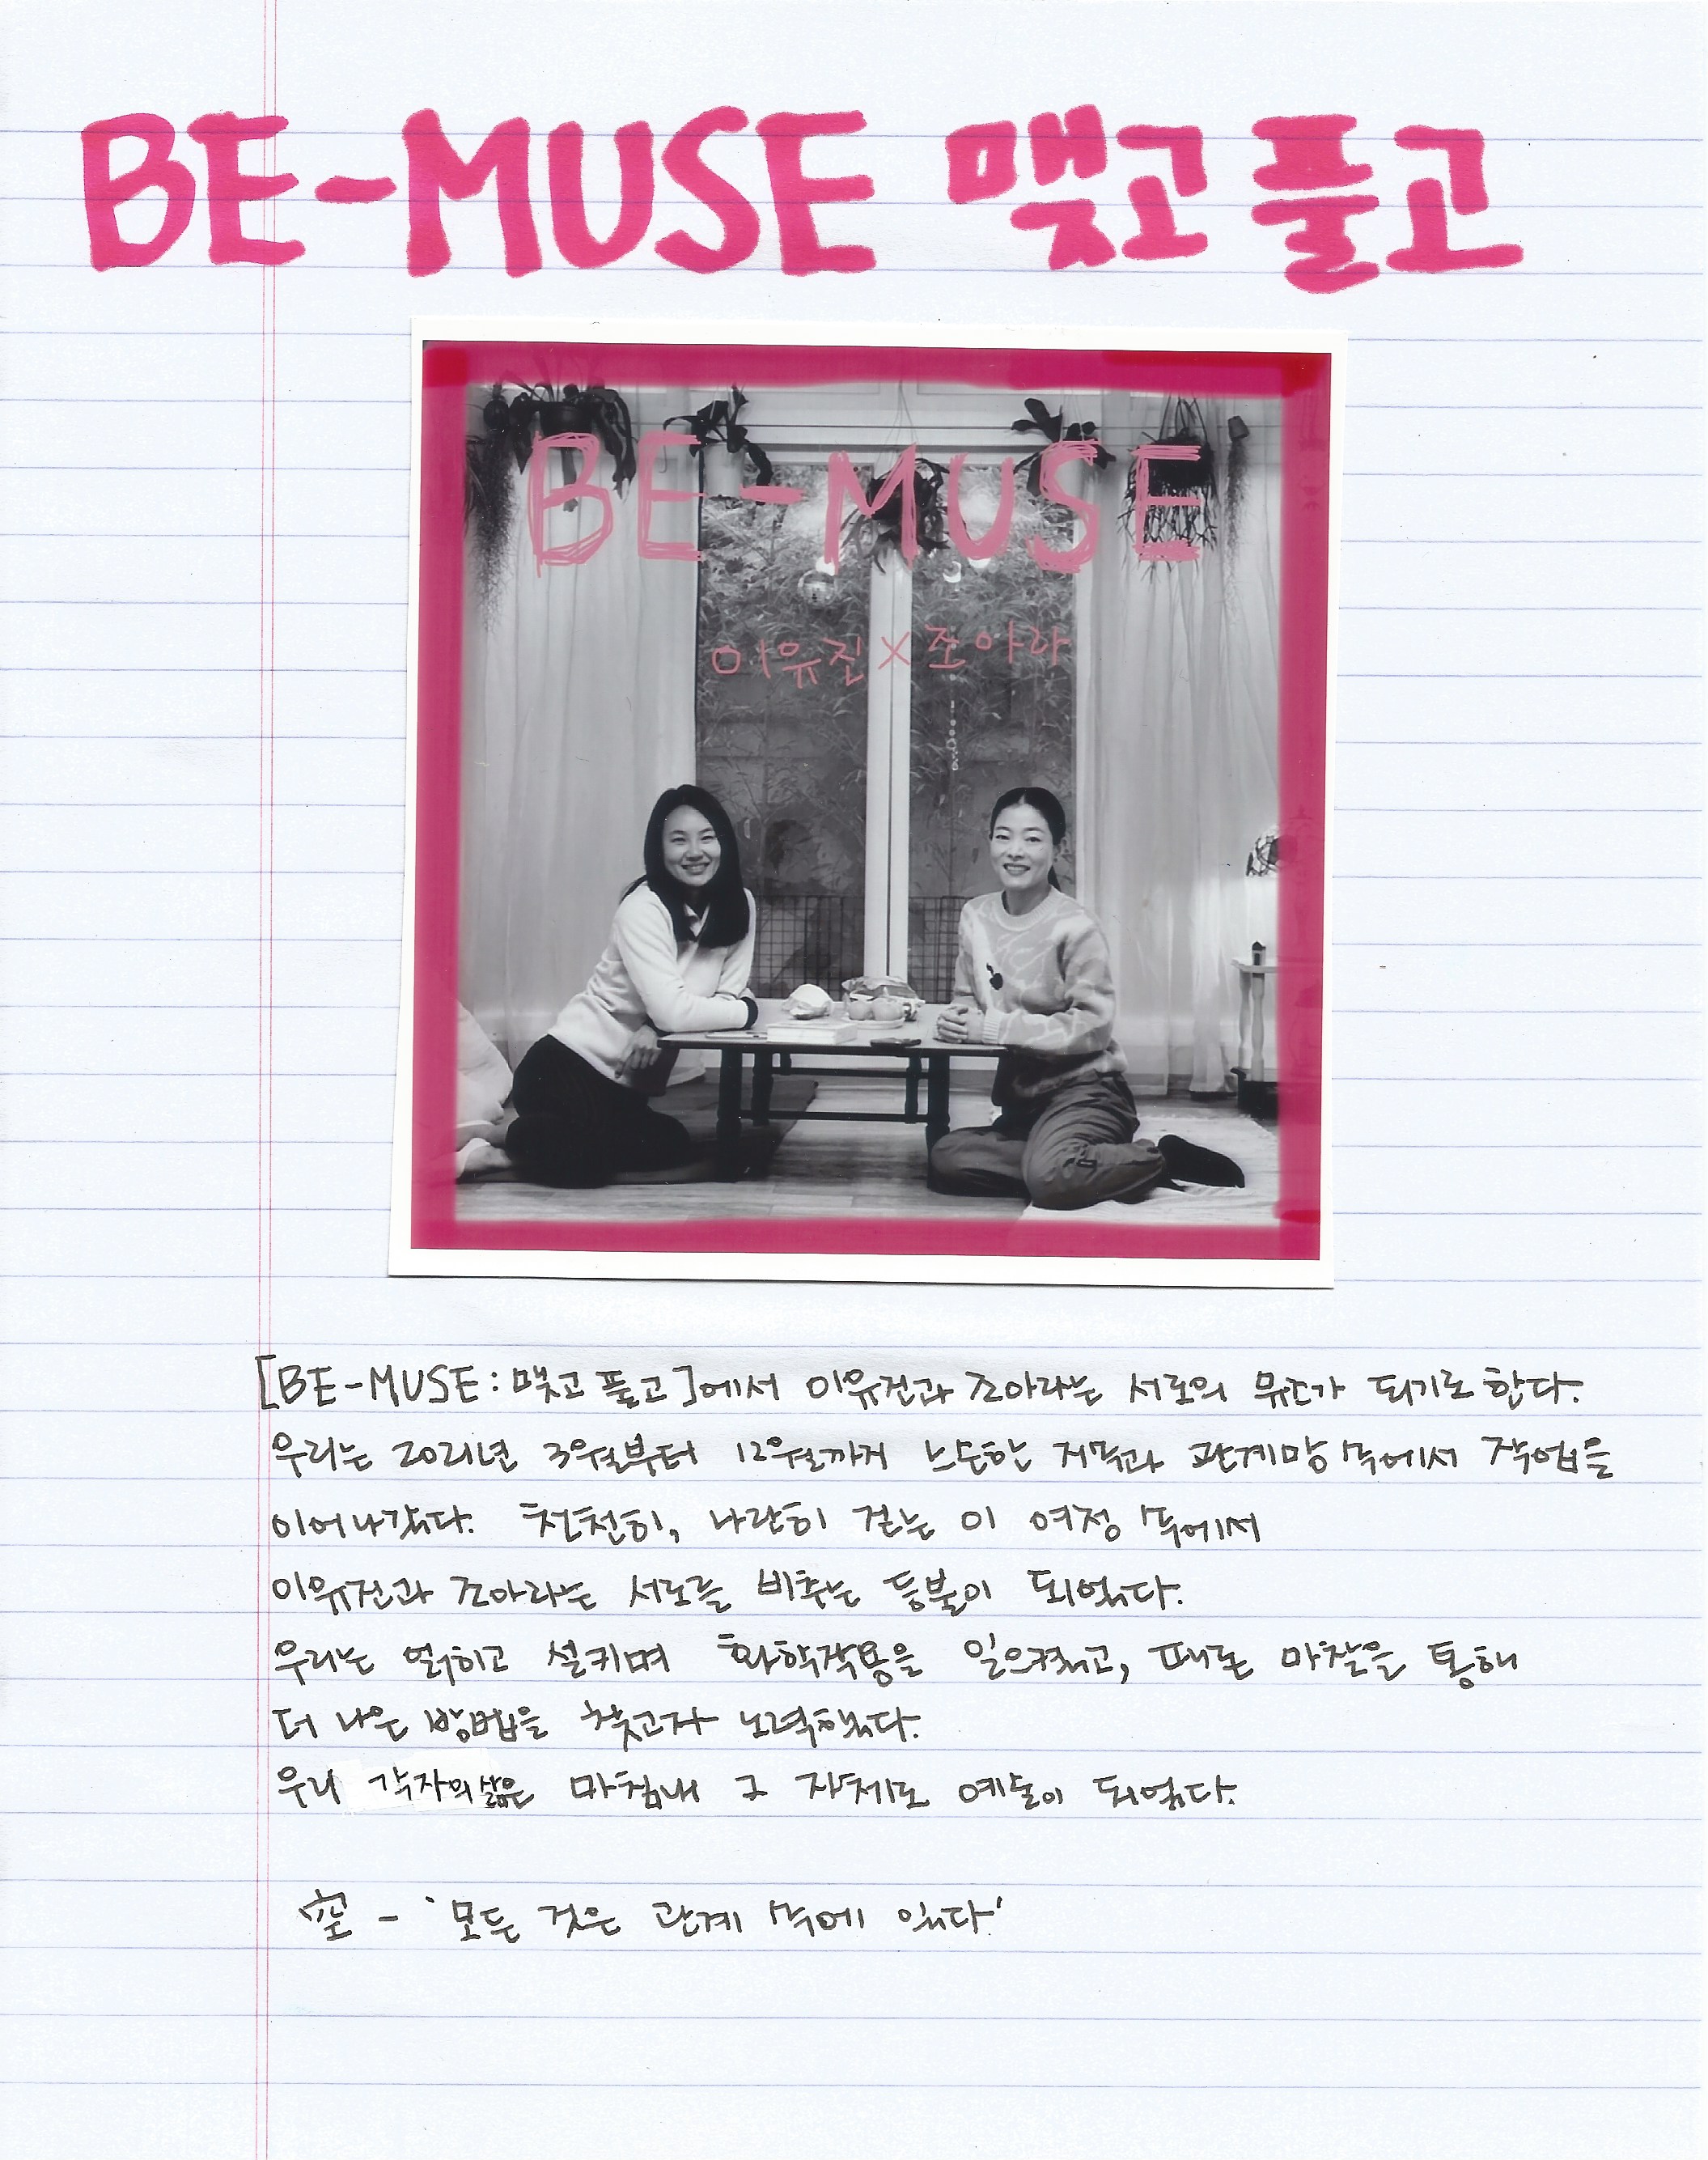 BE-MUSE 맺고 풀고
BE-MUSE
이유진 X 조아라
[BE-MUSE: 맺고 풀고]에서 이유진과 조아라는 서로의 뮤즈가 되기로 한다.
우리는 2021년 3월부터 12월까지 느슨한 저녁과 관계망 속에서 작업을
이어나갔다. 천천히, 나란히 걷는 이 여정 속에서
이유진과 조아라는 서로를 비추는 등불이 되었다.
우리는 얽히고 설키며 화학작용을 일으켰고, 때론 마찰을 통해
더 나은 방법을 찾고자 노력했다.
우리 각자의 삶은 마침내 그 자체로 예술이 되었다.
空 - '모든 것은 관계 속에 있다'